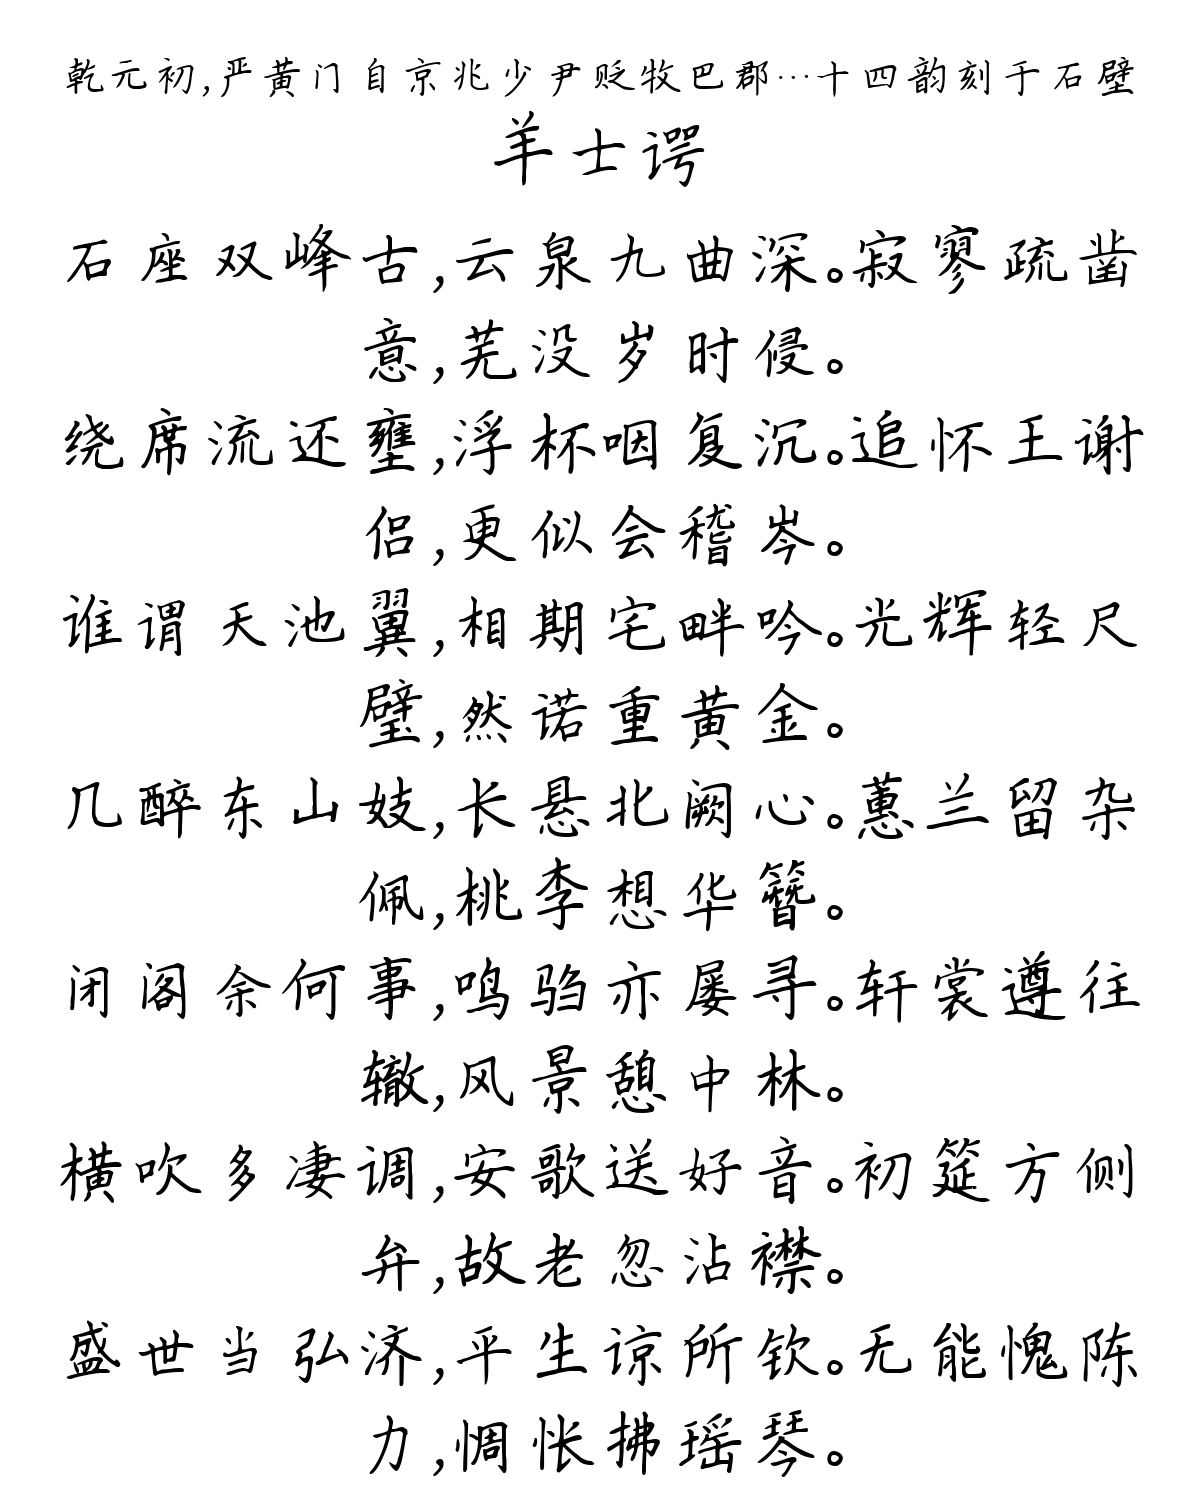 乾元初,严黄门自京兆少尹贬牧巴郡…十四韵刻于石壁
羊士谔
石座双峰古,云泉九曲深。寂寥疏凿
意,芜没岁时侵。
绕席流还壅,浮杯咽复沉。追怀王谢
侣,更似会稽岑。
谁谓天池翼,相期宅畔吟。光辉轻尺
璧,然诺重黄金。
几醉东山妓,长悬北阙心。蕙兰留杂
佩,桃李想华簪。
闭阁余何事,鸣驺亦屡寻。轩裳遵往
辙,风景憩中林。
横吹多凄调,安歌送好音。初筵方侧
弁,故老忽沾襟。
盛世当弘济,平生谅所钦。无能愧陈
力,惆怅拂瑶琴。